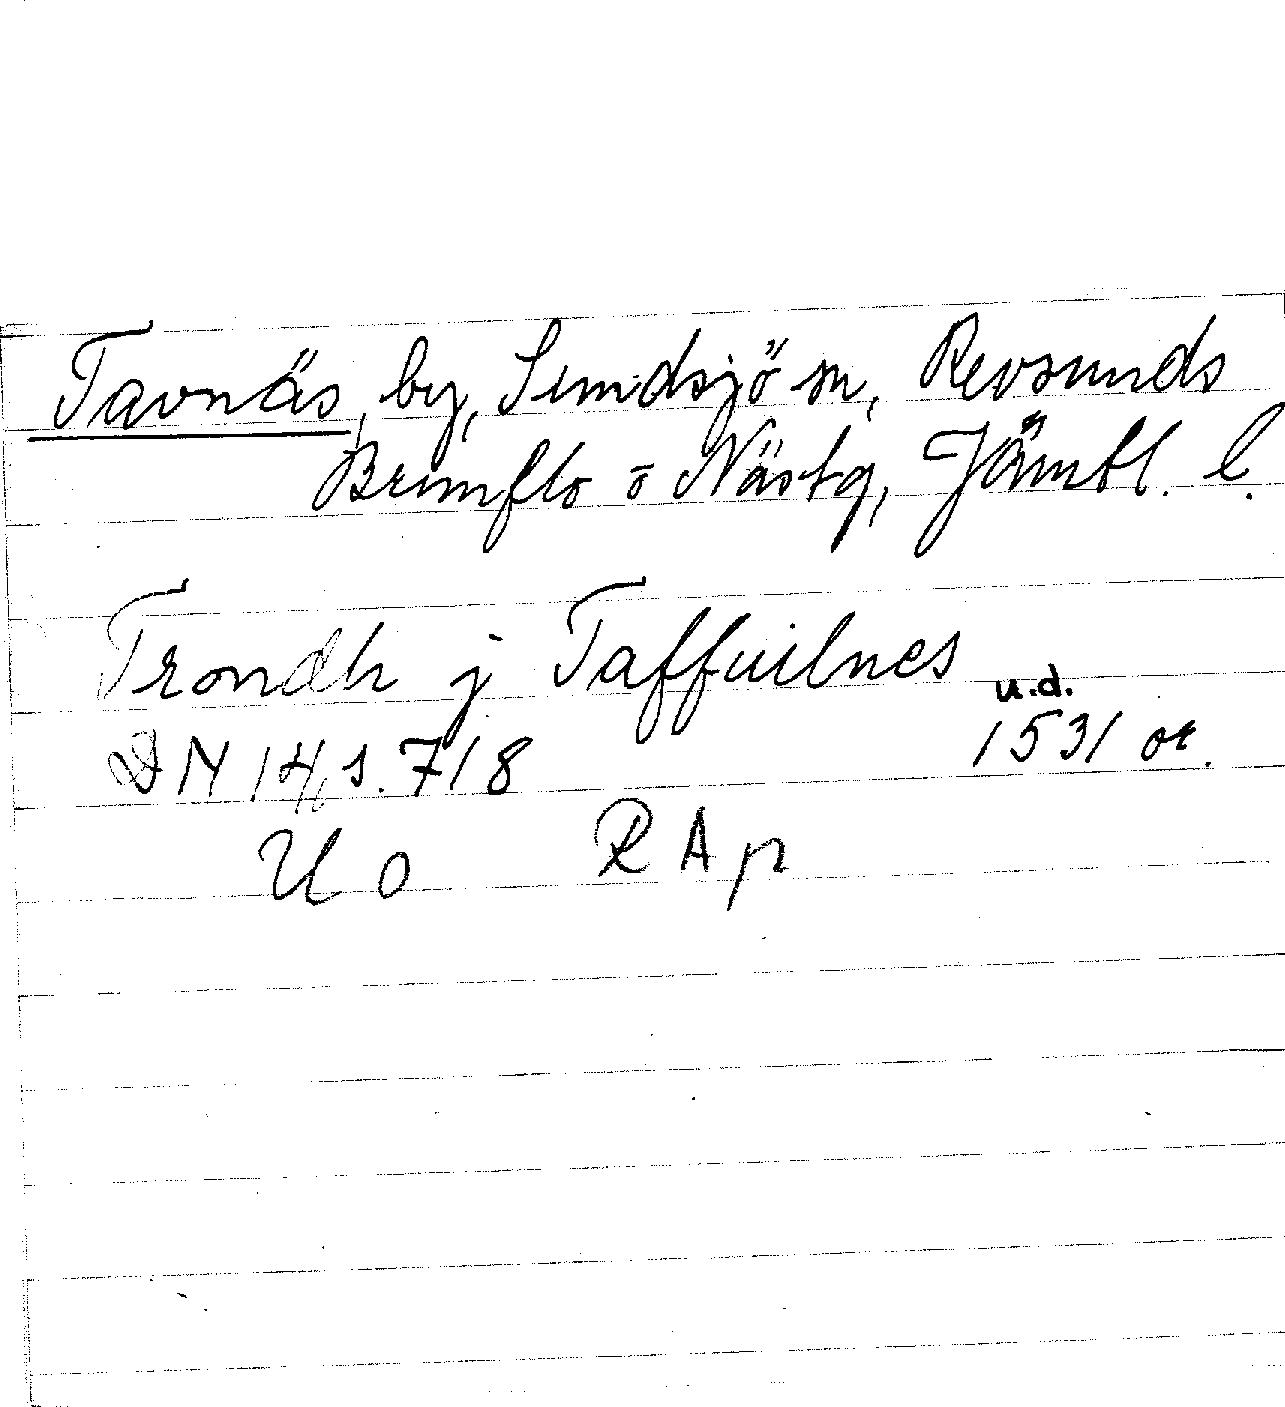 Tavnäs, by, Sundsjö sn, Revsunds
Brunflo o Näs tg, Jämtl. l.
Trondh j Taffuilnes
u.d.
DN 14, s. 718 1531 or.
U o RAp